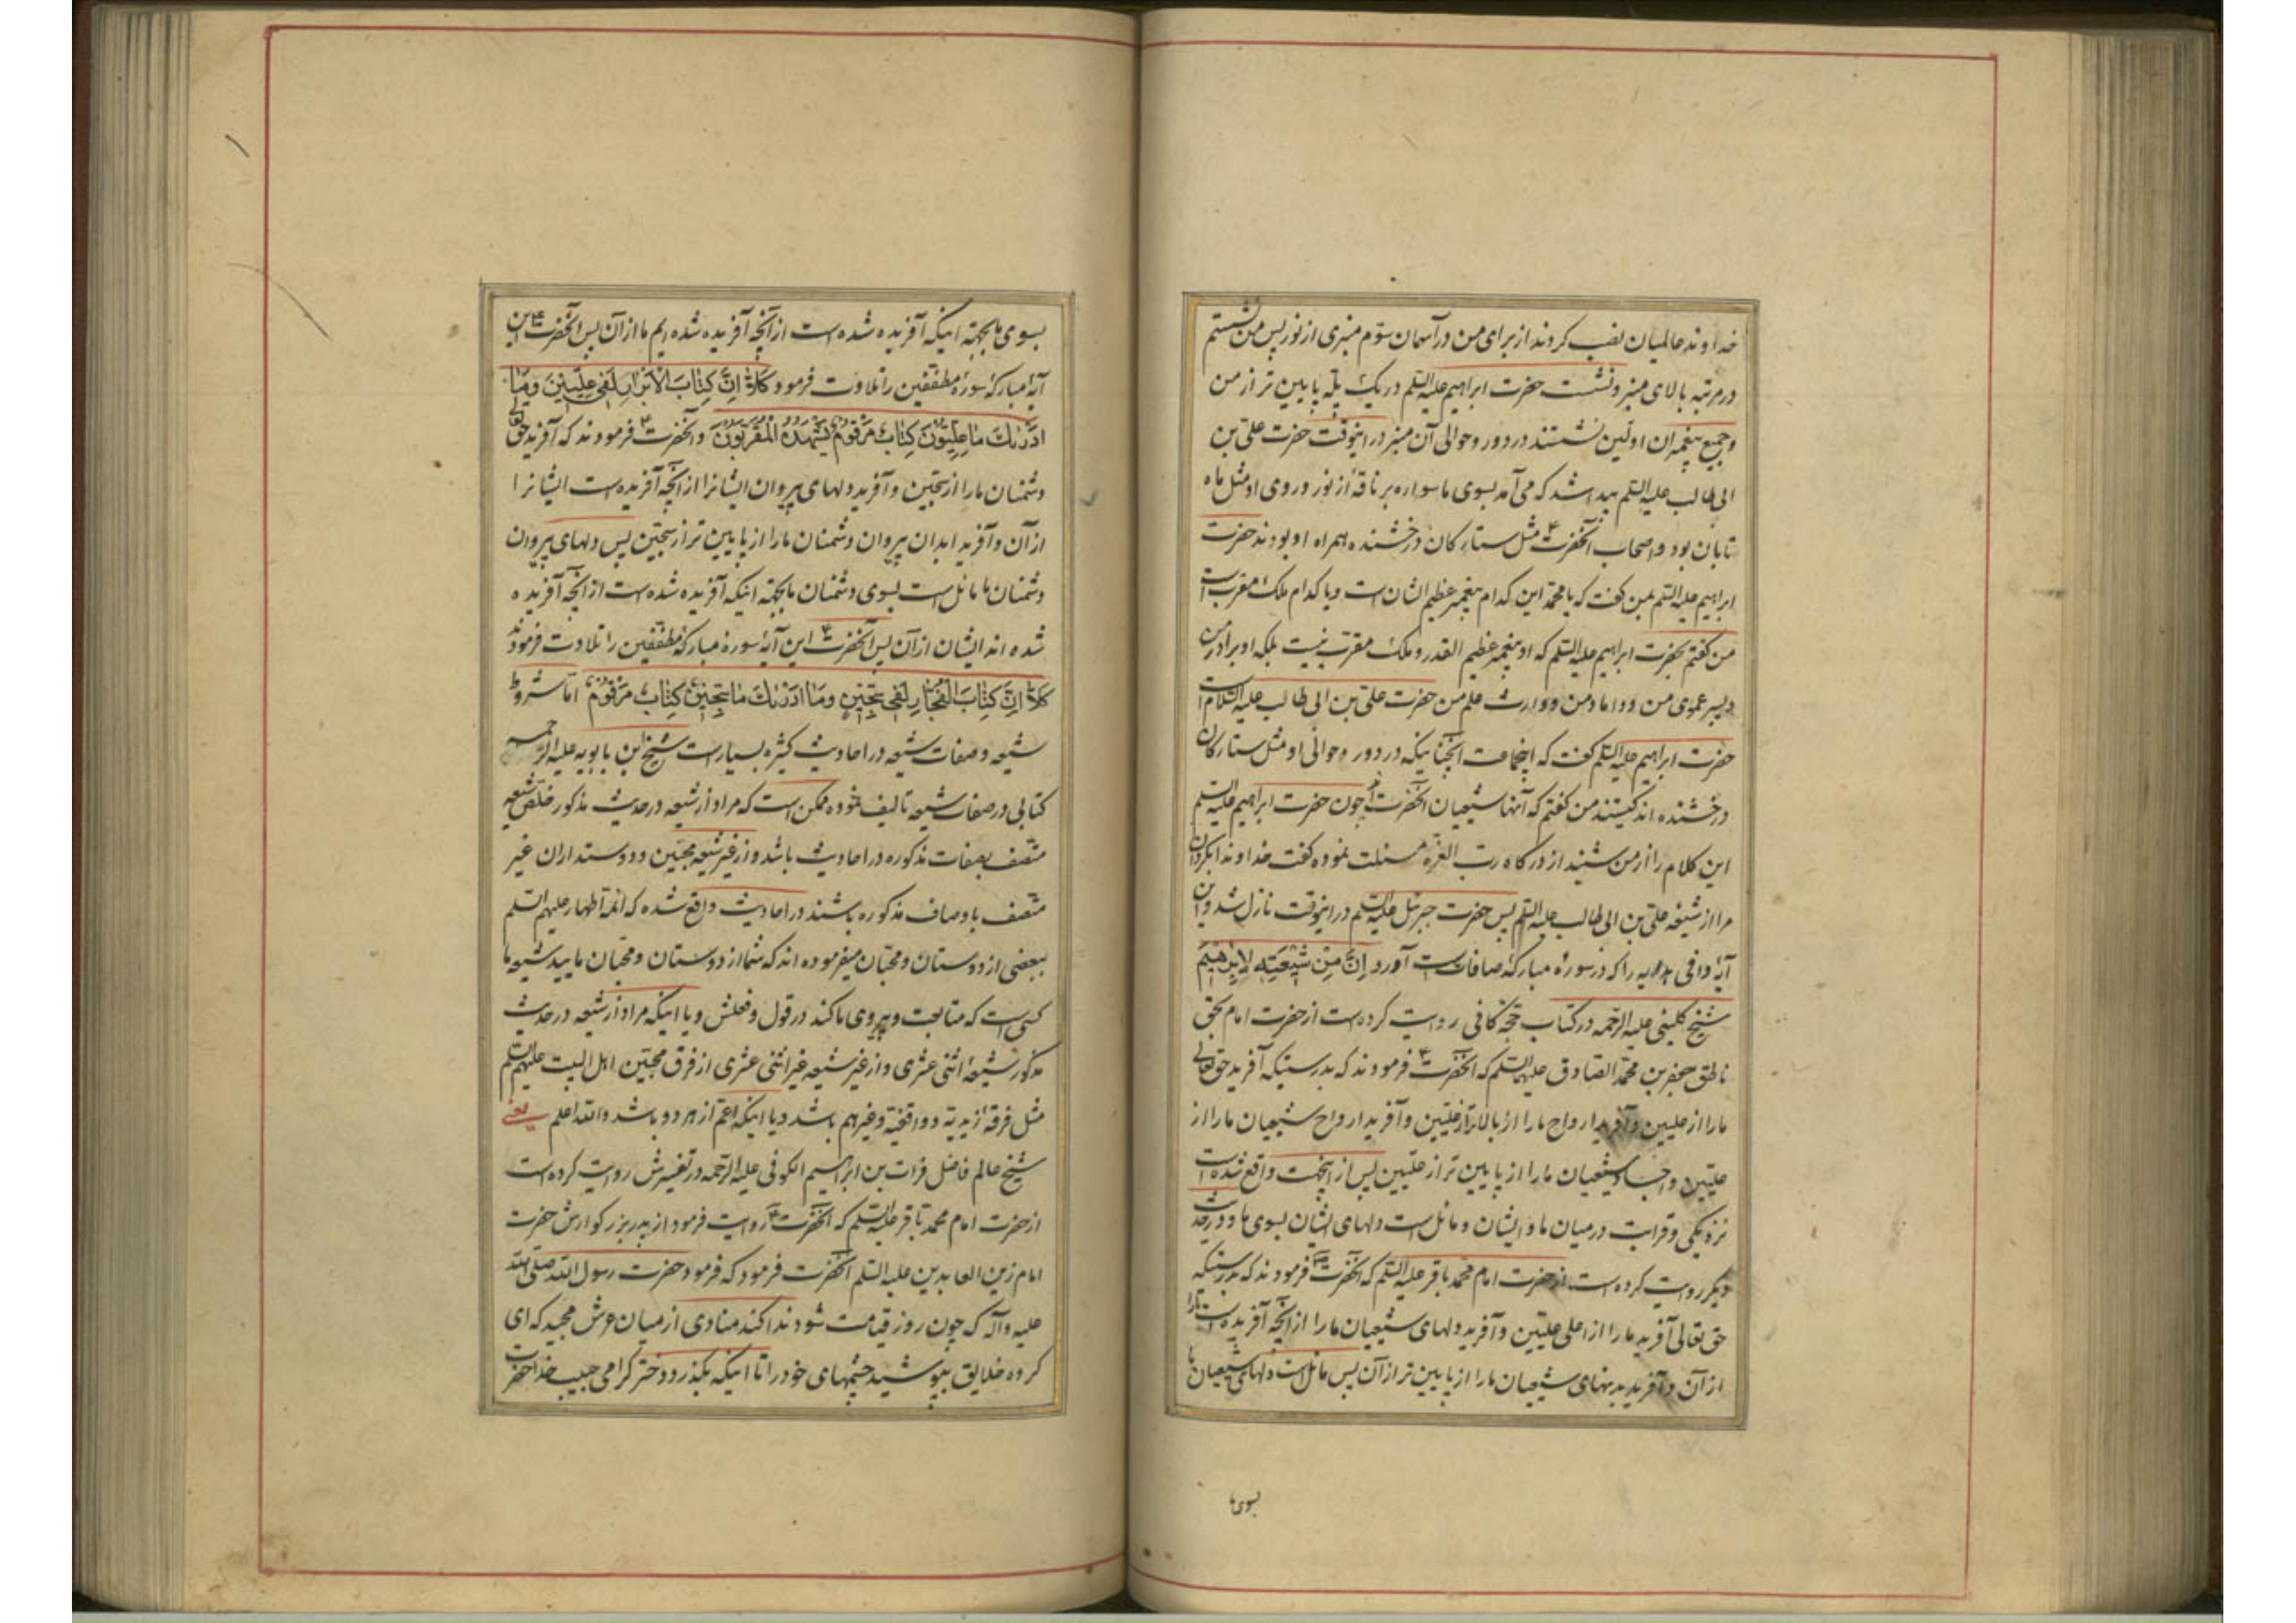 خداوند عالمیان نصب کردند از برای من در آسمان سوّم منبری از نور پس من نشستم
در مرتبه بالای منبر و نشست حضرت ابراهیم علیه السّلم در یک پلّه پایین تر از من
و جمیع پیغمبران اولین نشستند در دور و حوالی آن منبر در اینوقت حضرت علی بن
ابی طالب علیه السّلم پیدا شد که می آمد بسوی ما سواره بر ناقهٔ از نور و روی او مثل ماه
تابان بود و اصحاب آنحضرت ع مثل ستارکان درخشنده همراه او بودند حضرت
ابراهیم علیه السّلم بمن کفت که یا محمّد این کدام پیغمبر عظیم الشان است و یا کدام ملک مقرب است
من کفتم بحضرت ابراهیم علیه السّلم که او پیغمبر عظیم القدر و ملک مقرب نیست بلکه او برادر من
و پسر عموی من و داماد من و وارث علم من حضرت علی بن ابی طالب علیه السّلام است
حضرت ابراهیم علیه السّلم کفت که اینجماعت آنچنانیکه در دور و حوالی او مثل ستارکان
درخشنده اند کیستند من کفتم که آنها شیعیان آنحضرت اند چون حضرت ابراهیم علیه السّلم
این کلام را از من شنید از درکاه رب العزه مسئلت نموده کفت خداوندا بکردان
مرا از شیعهٔ علی بن ابی طالب علیه السّلم پس حضرت جبرئیل علیه السّلم در اینوقت نازل شد و این
آیهٔ وافی هدایه را که در سورهٔ مبارکهٔ صافات است آورد اِنَّ مِنْ شِیْعَتِهِ لَاِبْرٰهیمَ
شیخ کلینی علیه الرّحمه در کتاب حجّة کافی روایت کرده است از حضرت امام بحق
ناطق جعفر بن محمّد الصّادق علیهما السّلم که آنحضرت ع فرمودند که بدرستیکه آفرید حق تعالی
ما را از علیین و آفرید ارواح ما را از بالاتر از علیّین و آفرید ارواح شیعیان ما را از
علیّین و اجساد شیعیان ما را از پایین تر از علّیین پس از اینجهت واقع شده است
نزدیکی و قرابت در میان ما و ایشان و مائل است دلهای ایشان بسوی ما و در حدیث
دیکر روایت کرده است از حضرت امام محمّد باقر علیه السّلم که آنحضرت ع فرمودند که بدرستیکه
حق تعالی آفرید ما را از اعلی علیّین و آفرید دلهای شیعیان ما را از آنچه آفریده است ما را
از آن و آفرید بدنهای شیعیان ما را از پایین تر از آن پس مائل است دلهای شیعیان ما
بسوی ما
بسوی ما بجهته اینکه آفریده شده است از آنچه آفریده شده ایم ما از آن پس آنحضرت ع این
آیهٔ مبارکهٔ سورهٔ مطفّفین را تلاوت فرمود کَلّا اِنَّ کِتٰابَ الْاَبْرٰارِ لَفی عِلّیّینَ وَمٰا
اَدْرٰیکَ مٰا عِلِّیُّونَ کِتٰابٌ مَرْقُومٌ یَشْهَدُهُ الْمُقَرَّبُونَ و آنحضرت ع فرمودند که آفرید حق تعالی
دشمنان ما را از سجّین و آفرید دلهای پیروان ایشانرا از آنچه آفریده است ایشانرا
از آن و آفرید ابدان پیروان دشمنان ما را از پایین تر از سجّین پس دلهای پیروان
دشمنان ما مائل است بسوی دشمنان ما بجهته اینکه آفریده شده است از آنچه آفریده
شده اند ایشان از آن پس آنحضرت ع این آیهٔ سورهٔ مبارکهٔ مطفّفین را تلاوت فرمودند
کَلّا اِنَّ کِتٰابَ الْفُجّٰارِ لَفی سِجّینٍ وَمٰا اَدْرٰیکَ مٰا سِجّینٌ کِتٰابٌ مَرْقُومٌ امّا شروط
شیعه و صفات شیعه در احادیث کثیره بسیار است شیخ ابن بابویه علیه الرحمه
کتابی در صفات شیعه تالیف نموده ممکن است که مراد از شیعه در حدیث مذکور خلّص شیعه
متّصف بصفات مذکوره در احادیث باشد و از غیر شیعه محبّین و دوستداران غیر
متّصف باوصاف مذکوره باشند در احادیث واقع شده که ائمّه اطهار علیهم السّلم
ببعضی از دوستان و محبّان میفرموده اند که شما از دوستان و محبّان مایید شیعه ما
کسی است که متابعت و پیروی ما کند در قول و فعلش و یا اینکه مراد از شیعه در حدیث
مذکور شیعهٔ اثنی عشری و از غیر شیعه غیر اثنی عشری از فرق محبّین اهل البیت علیهم السّلم
مثل فرقهٔ زیدیّه و واقفیّه و غیرهم باشد و یا اینکه اعمّ از هر دو باشد و الله اعلم یعنی
شیخ عالم فاضل فرات بن ابراهیم الکوفی علیه الرّحمه در تفسیرش روایت کرده است
از حضرت امام محمّد باقر علیه السّلم که آنحضرت ع روایت فرمود از پدر بزرکوارش حضرت
امام زین العابدین علیه السّلم آنحضرت فرمود که فرمود حضرت رسول الله صلّی الله
علیه و آله که چون روز قیامت شود ندا کند منادی از میان عرش مجید که ای
کروه خلایق بپوشید چشمهای خود را تا اینکه بکذرد دختر کرامی حبیب خدا حضرت